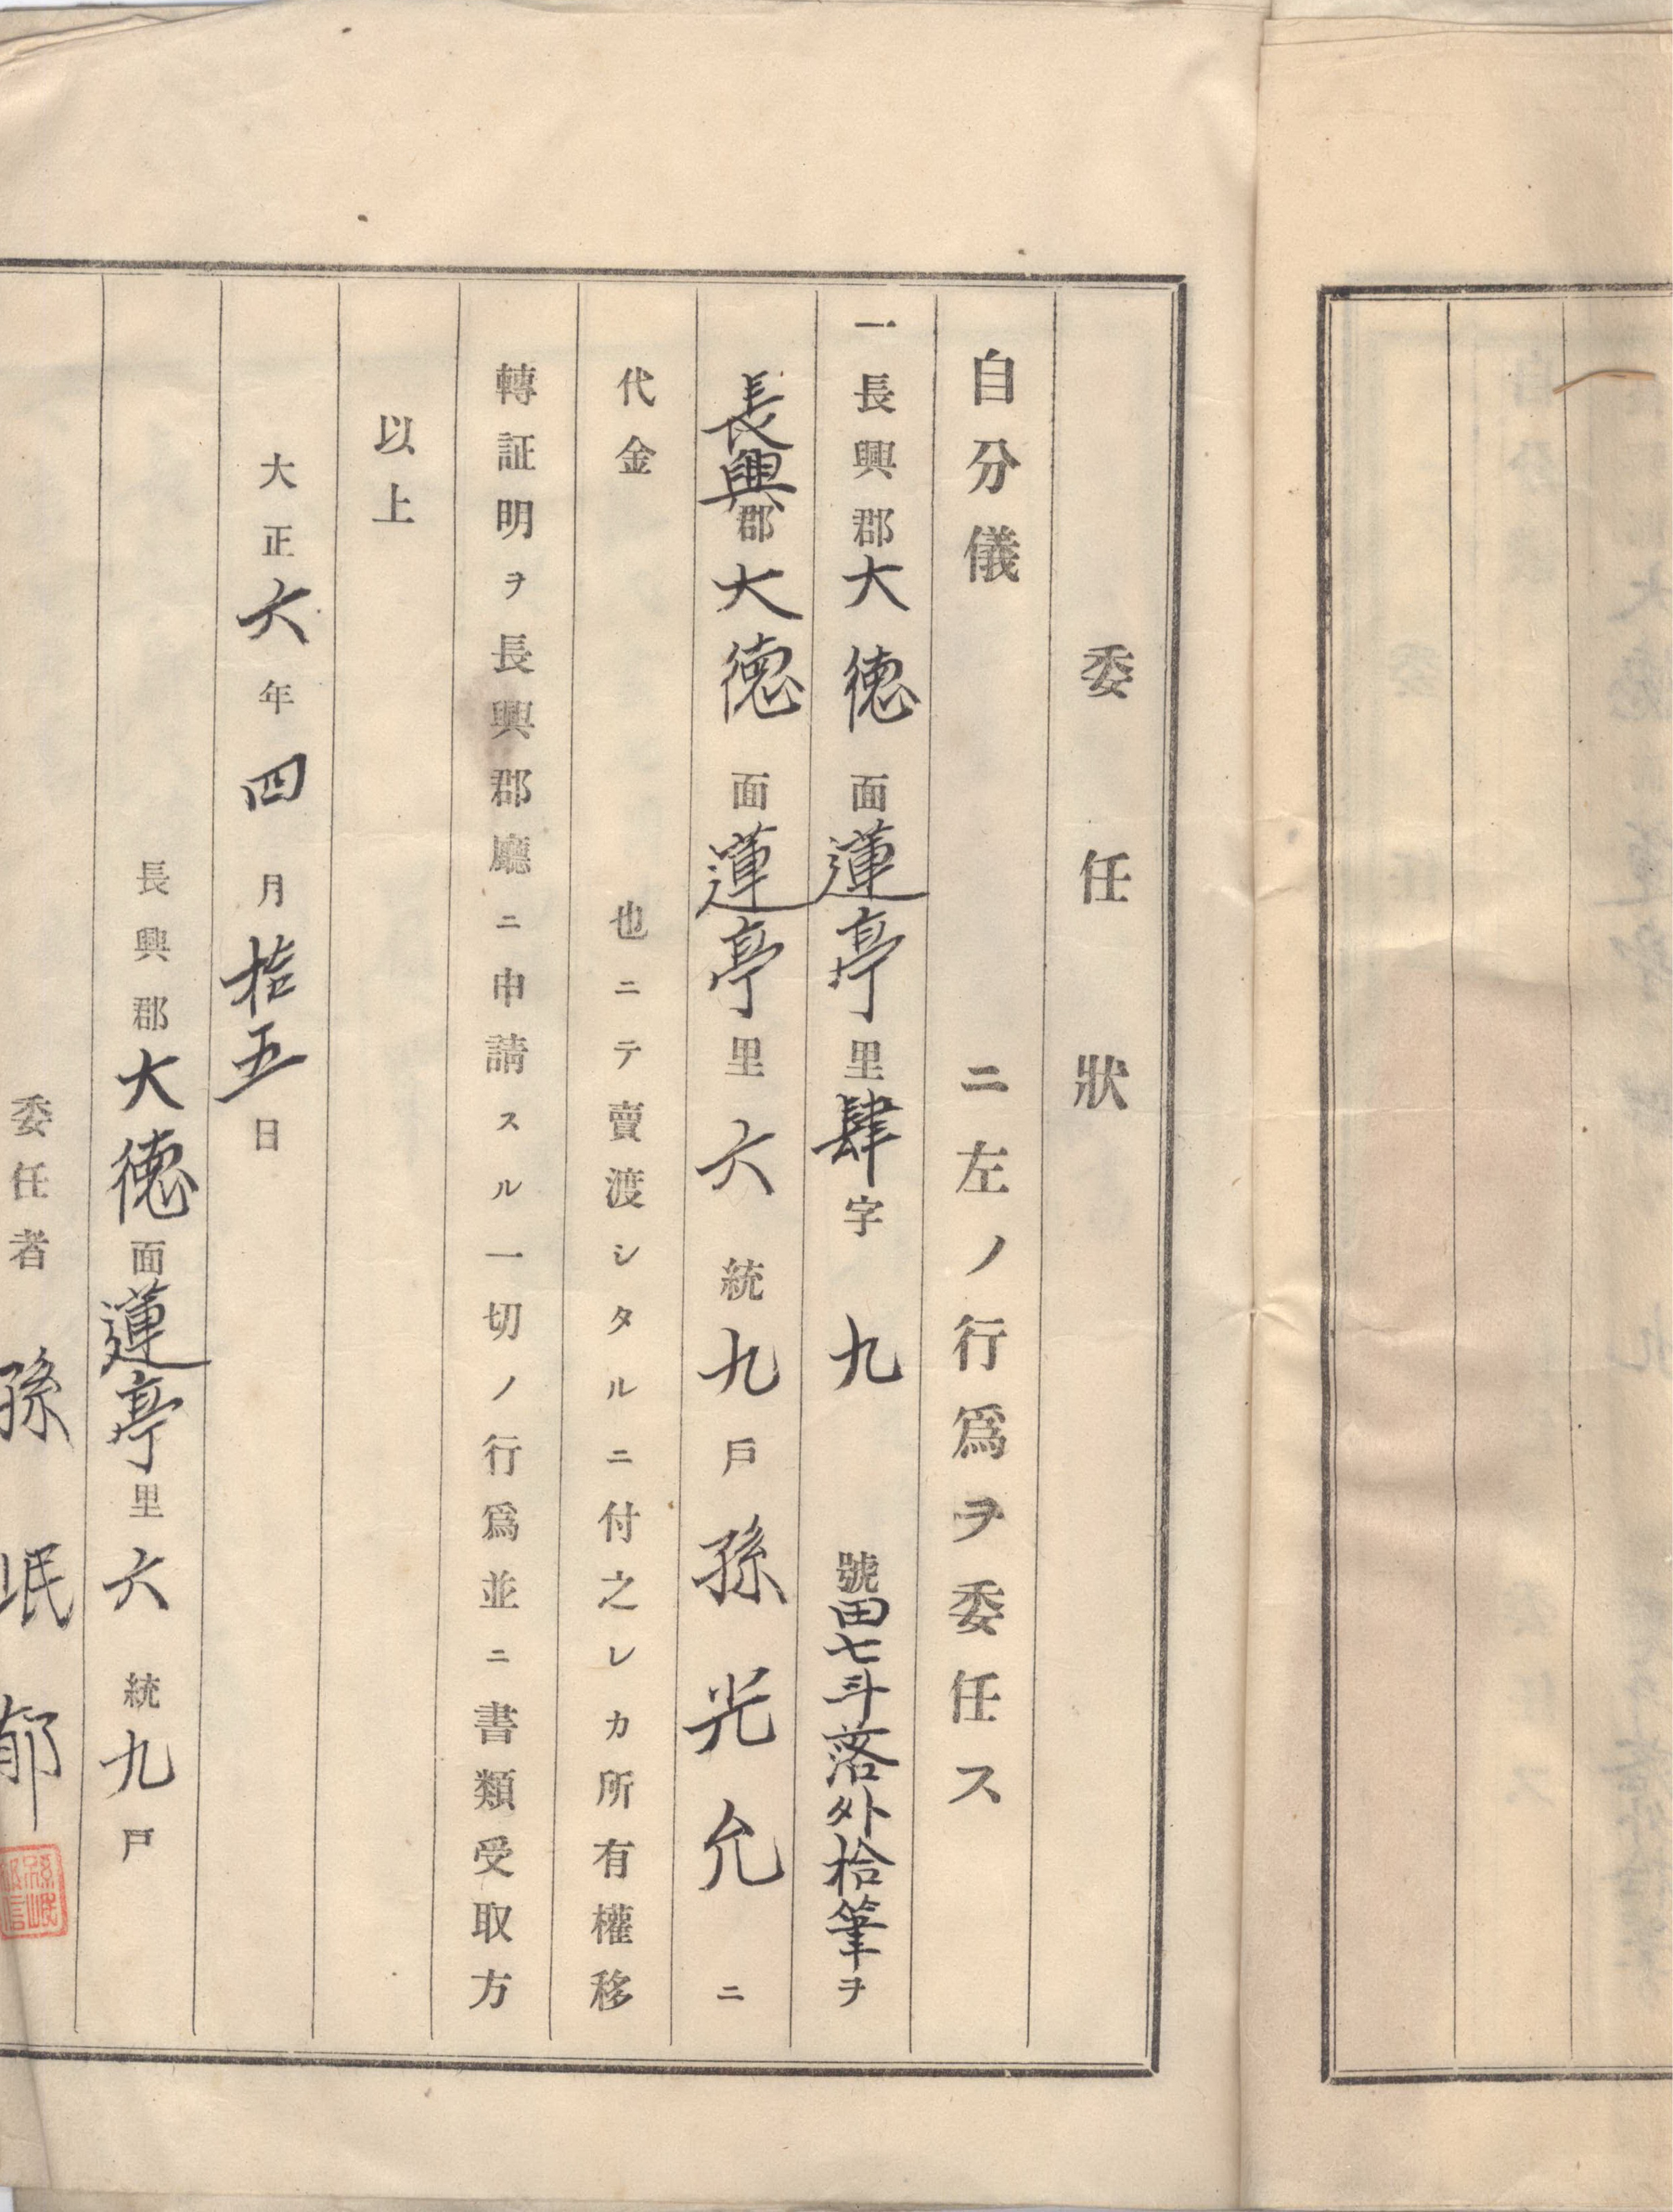 委任狀
自分儀 ニ左ノ行爲ヲ委任ス
一長興郡大德面蓮亭里肆字九號田七斗落外拾筆ヲ
長興郡大德面蓮亭里六統九戶孫光允ニ
代金 也ニテ賣渡シタルニ付之レカ所有權移
轉証明ヲ長興郡廳ニ申請スル一切ノ行爲並ニ書類受取方
以上
大正六年四月拾五日
長興郡大德面蓮亭里六統九戶
委任者 孫岷郁